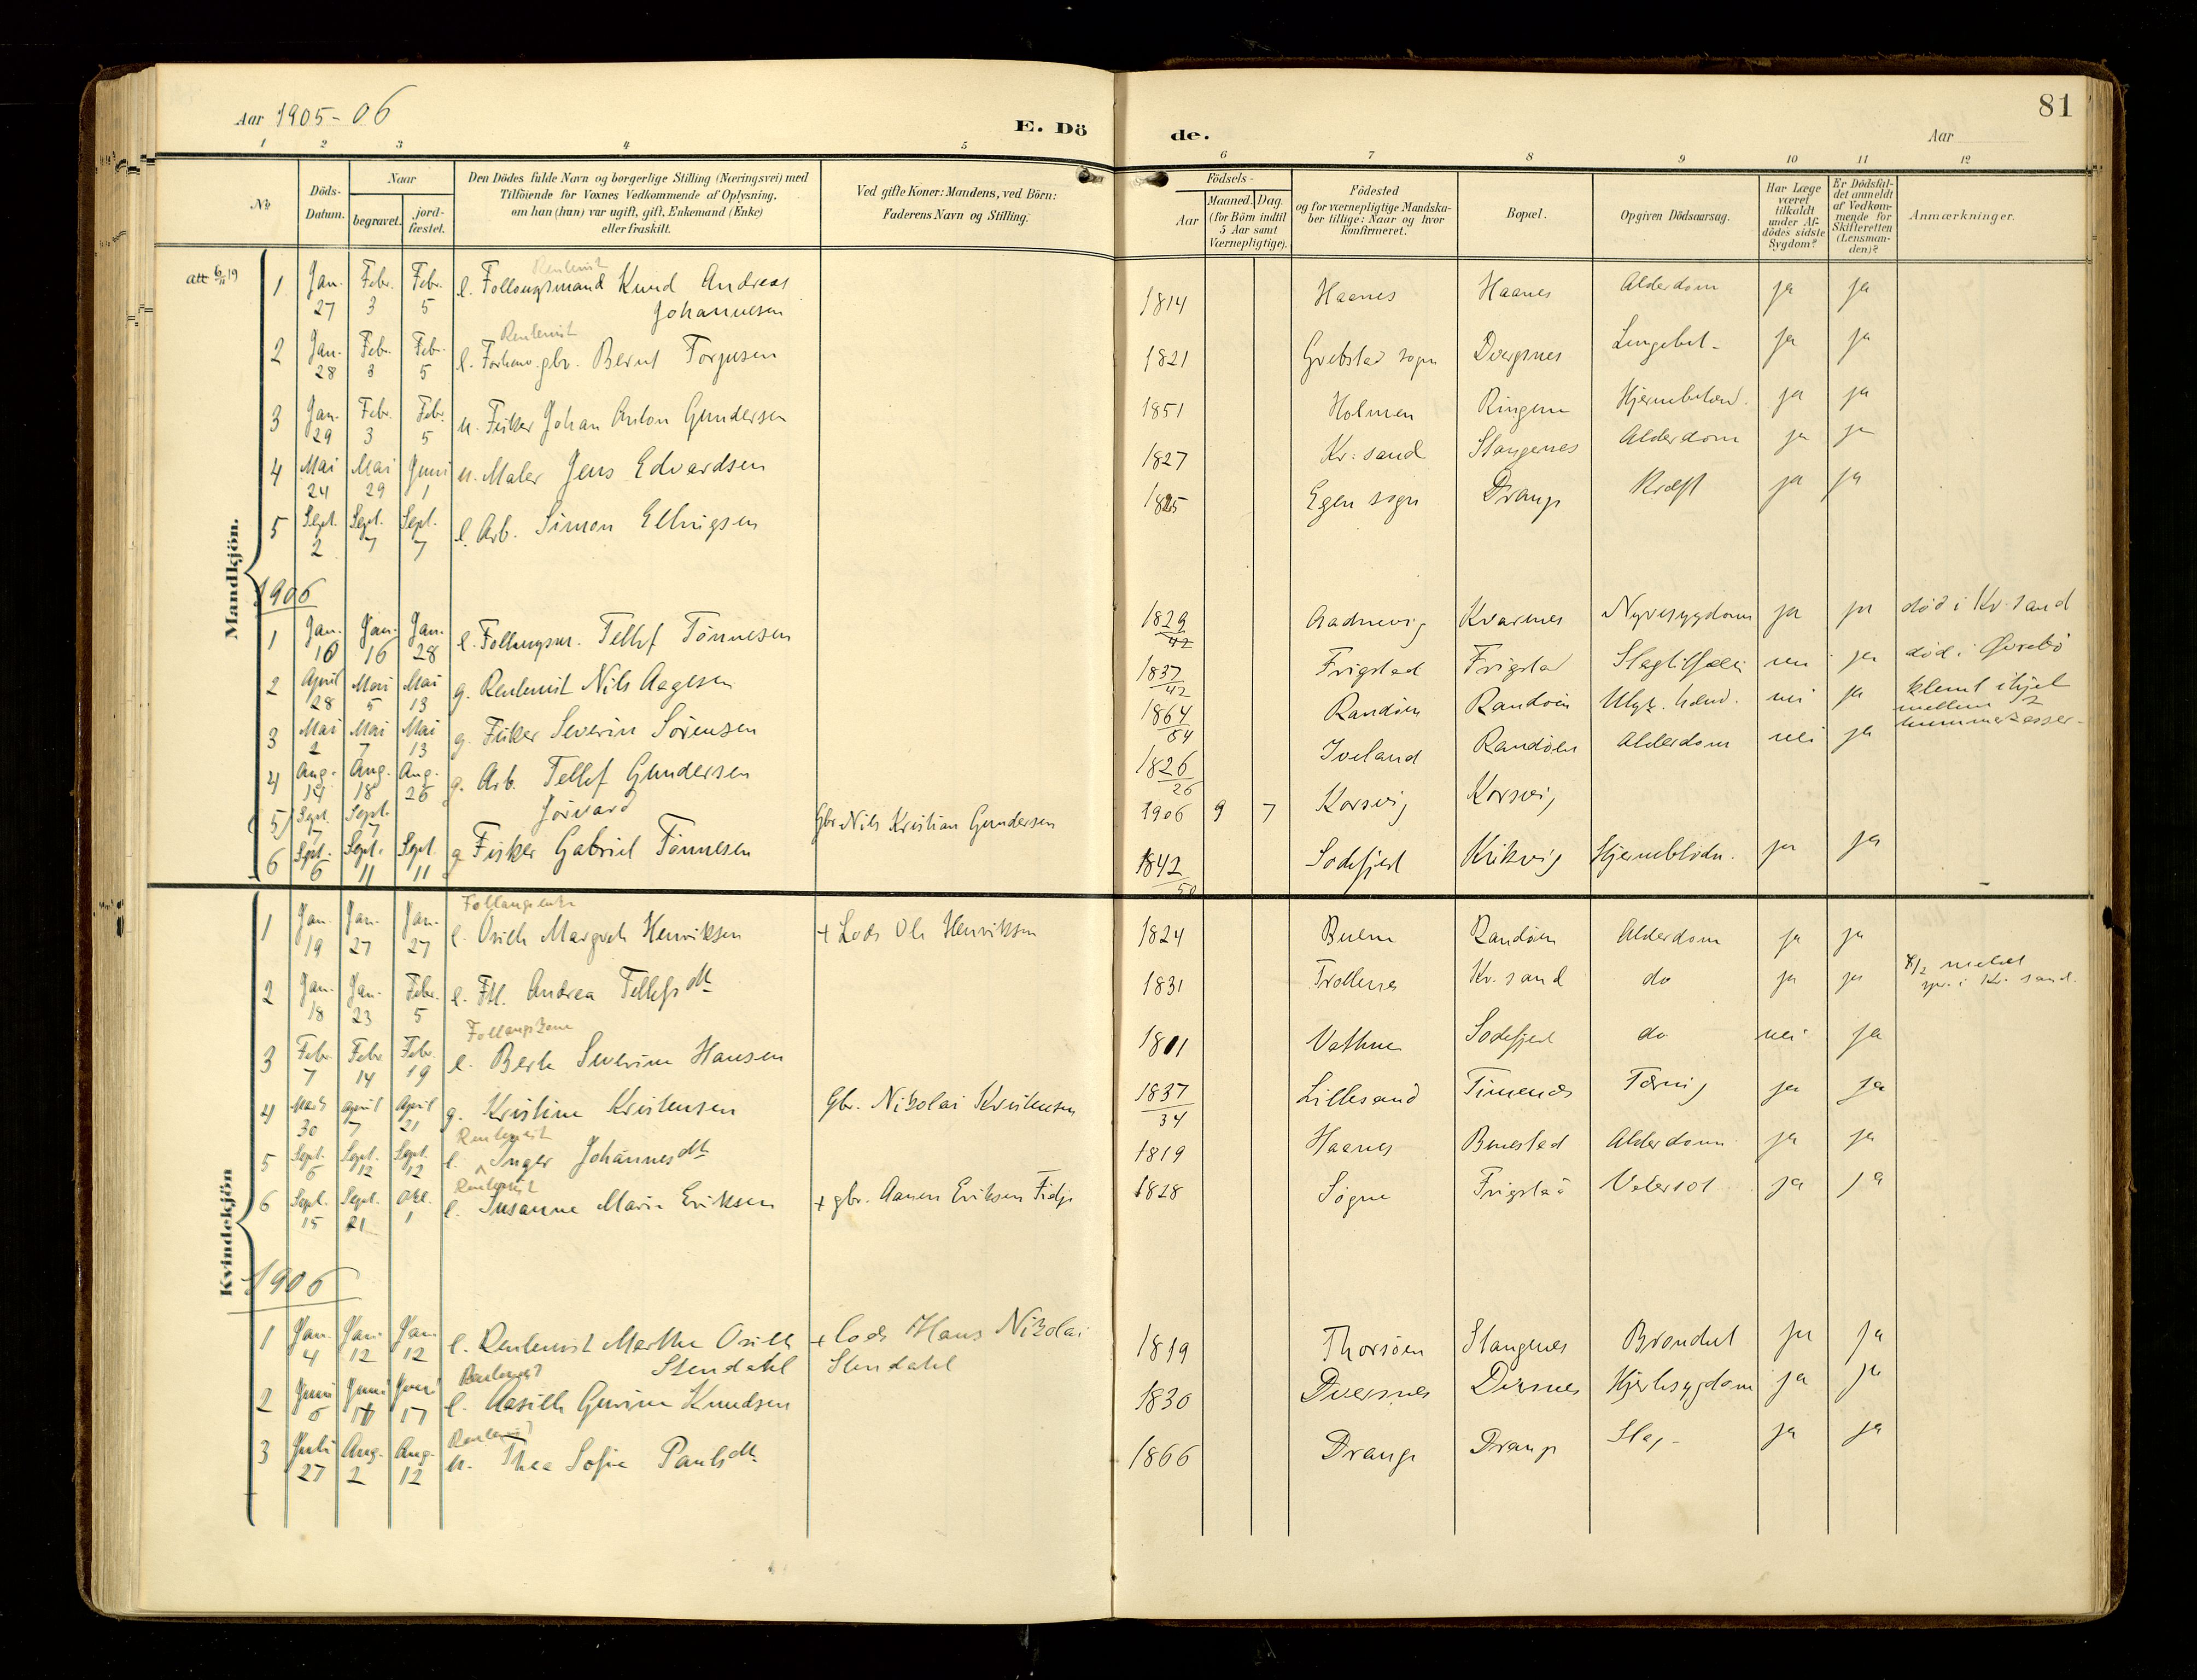 Aar 1905-06
E. Dö de.
81
Aar
1 2 3 4 5 6 7 8 9 10 11 12
No.
Döds-
Datum.
Naar
begravet.
jord-
fæstet.
Den Dödes fulde Navn og borgerlige Stilling (Næringsvei) med
Tilföiende for Voxnes Vedkommende af Oplysning,
om han (hun) var ugift, gift, Enkemand (Enke)
eller fraskilt.
Ved gifte Koner: Mandens, ved Börn:
Faderens Navn og Stilling.
Födsels-
Aar
Maaned. Dag.
(for Börn indtil
5 Aar samt
Værnepligtige).
Födested
og for værnepligtige Mandska-
ber tillige: Naar og hvor
Konfirmeret.
Bopæl.
Opgiven Dödsaarsag.
Har Læge
været
tilkaldt
under Af-
dödes sidste
Sygdom?
Er Dödsfal-
det anmeldt
af Vedkom-
mende for
Skifteretten
(Lensman-
den)?
Anmærkninger.
Mandkjön.
att 6/11 19
Rentenist
1 Jan. 27 Febr. 3 Febr. 5 e. Follaugsmand Knud Andreas 1814 Haanes Haanes Alderdom ja ja
Johannesen
Rentenist
2 Jan. 28 Febr. 3 Febr. 5 e. gbr. Bernt Torjusen 1821 sogn Dvergsnes ja ja
3 Jan. 29 Febr. 3 Febr. 5 u. Fisker Johan Anton Gundersen 1851 Holmen Ringene ja ja
4 Mai 24 Mai 29 Juni 1 u. Maler Jens Edvardsen 1827 Kr:sand Stangenes Alderdom ja ja
5 Sept. 2 Sept. 7 Sept. 7 e. Arb. Simon Ellingsen Egen sogn Drange Kræft ja ja
1906
1 Jan. 10 Jan. 16 Jan. 28 e. Follaugsm. Tellef Tönnesen 1829 42 Aadnevig Kvarnes Nyresygdom ja ja död i Kr.sand
2 April 28 Mai 5 Mai 13 g. Rentenist Nils Aagesen 1837 42 Frigstad Frigstad Slagtilfælde nei ja död i Övrebö
3 Mai 2 Mai 7 Mai 13 g. Fisker Severin Sörensen 1864 64 Randöen Randöen Ulyk. hænd. nei ja klemt ihjel
mellem 2
4 Aug. 14 Aug. 18 Aug. 26 g. Arb. Tellef Gundersen 1826 26 Iveland Randöen Alderdom nei ja
(5) Sept. 7 Sept. 7 Gbr. Nils Kristian Gundersen 1906 9 7 Korsvig Korsvig
6 Sept. 6 Sept. 11 Sept. 11 g Fisker Gabriel Tönnesen 1842 50 Sodefjed Kikvig Hjerneblödn. ja ja
Kvindekjön
Follaugsenke
1 Jan. 19 Jan. 27 Jan. 27 e. Osille Margrete Henriksen + Lods Ole Henriksen 1824 Buene Randöen Alderdom ja ja
2 Jan. 18 Jan. 23 Febr. 5 e. Ftl. Andrea Tellefsdtr 1831 Trollenes Kr.sand do ja ja
Follaugskone
3 Febr. 7 Febr 14 Febr. 19 e. Berte Severine Hansen Vathne Sodefjed do nei ja
4 Marts 30 April 7 April 21 g. Kristine Kristensen Gbr. Nikolai Kristensen 1837 34 Lillesand Timenes Tæring ja ja
Rentenist
5 Sept. 6 Sept. 12 Sept. 12 e. Inger Johannesdtr 1819 Haanes Benestad Alderdom ja ja
Rentenist
6 Sept. 15 Sept. 21 Okt. 1 e. Susanne Marie Eriksen + gbr. Aanen Eriksen Fidje 1828 Sögne Frigstad Vatersot ja ja
1906
1 Jan. 4 Jan. 12 Jan. 12 e. Rentenist Marthe Osille + lods Hans Nikolai 1819 Thorsöen Stangenes ja ja
Stendahl Stendahl
Rentenist
2 Juni 6 Juni Juni 17 e. Aasille Gurine Knudsen 1830 Dversnes Dversnes Hjertesygdom ja ja
Rentenist
3 Juli 27 Aug. 2 Aug. 12 u. Thea Sofie Paulsdtr 1866 Drange Drange Slag ja ja